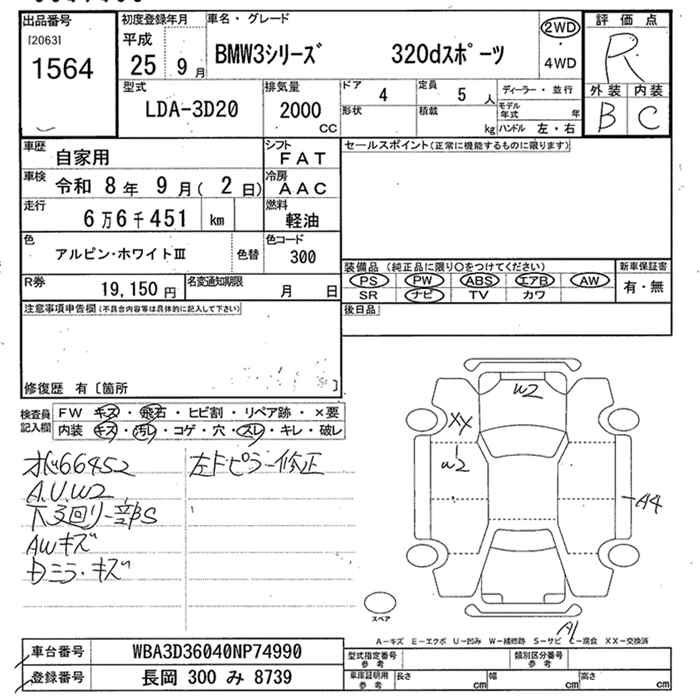 出品番号
[2063]
1564
初度登録年月
平成
25 9 月
車名・グレード
BMW3シリーズ 320dスポーツ
2WD
・
4WD
評価点
R
外装 内装
B C
型式
LDA-3D20
排気量
2000
CC
ドア
4
定員
5 人
形状
積載
kg
ディーラー・並行
モデル年式 年
ハンドル 左・右
車歴
自家用
シフト
FAT
車検
令和 8 年 9 月( 2 日)
冷房
AAC
走行
6 万 6 千 451 km
燃料
軽油
色
アルピン・ホワイトⅢ
色替
色コード
300
R券
19,150 円
名変通知期限
月 日
セールスポイント(正常に機能するものに限ります)
装備品 (純正品に限り○をつけてください)
PS PW ABS エアB AW
SR ナビ TV カワ
新車保証書
有・無
後日品
注意事項申告欄(不具合内容等は具体的に記入して下さい)
修復歴 有〔箇所 〕
検査員記入欄
FW キズ・飛石・ヒビ割・リペア跡・×要
内装 キズ・汚レ・コゲ・穴・スレ・キレ・破レ
オド66452
A.U.W2
下回り一部S
AWキズ
Dミラーキズ
左Fピラー修正
W2
XX
W2
A4
A1
スペア
A―キズ E―エクボ U―凹み W―補修跡 S―サビ C―腐食 XX―交換済
車台番号
WBA3D36040NP74990
登録番号
長岡 300 み 8739
型式指定番号
参考
類別区分番号
参考
車庫証明用
参考
長さ cm
幅 cm
高さ cm